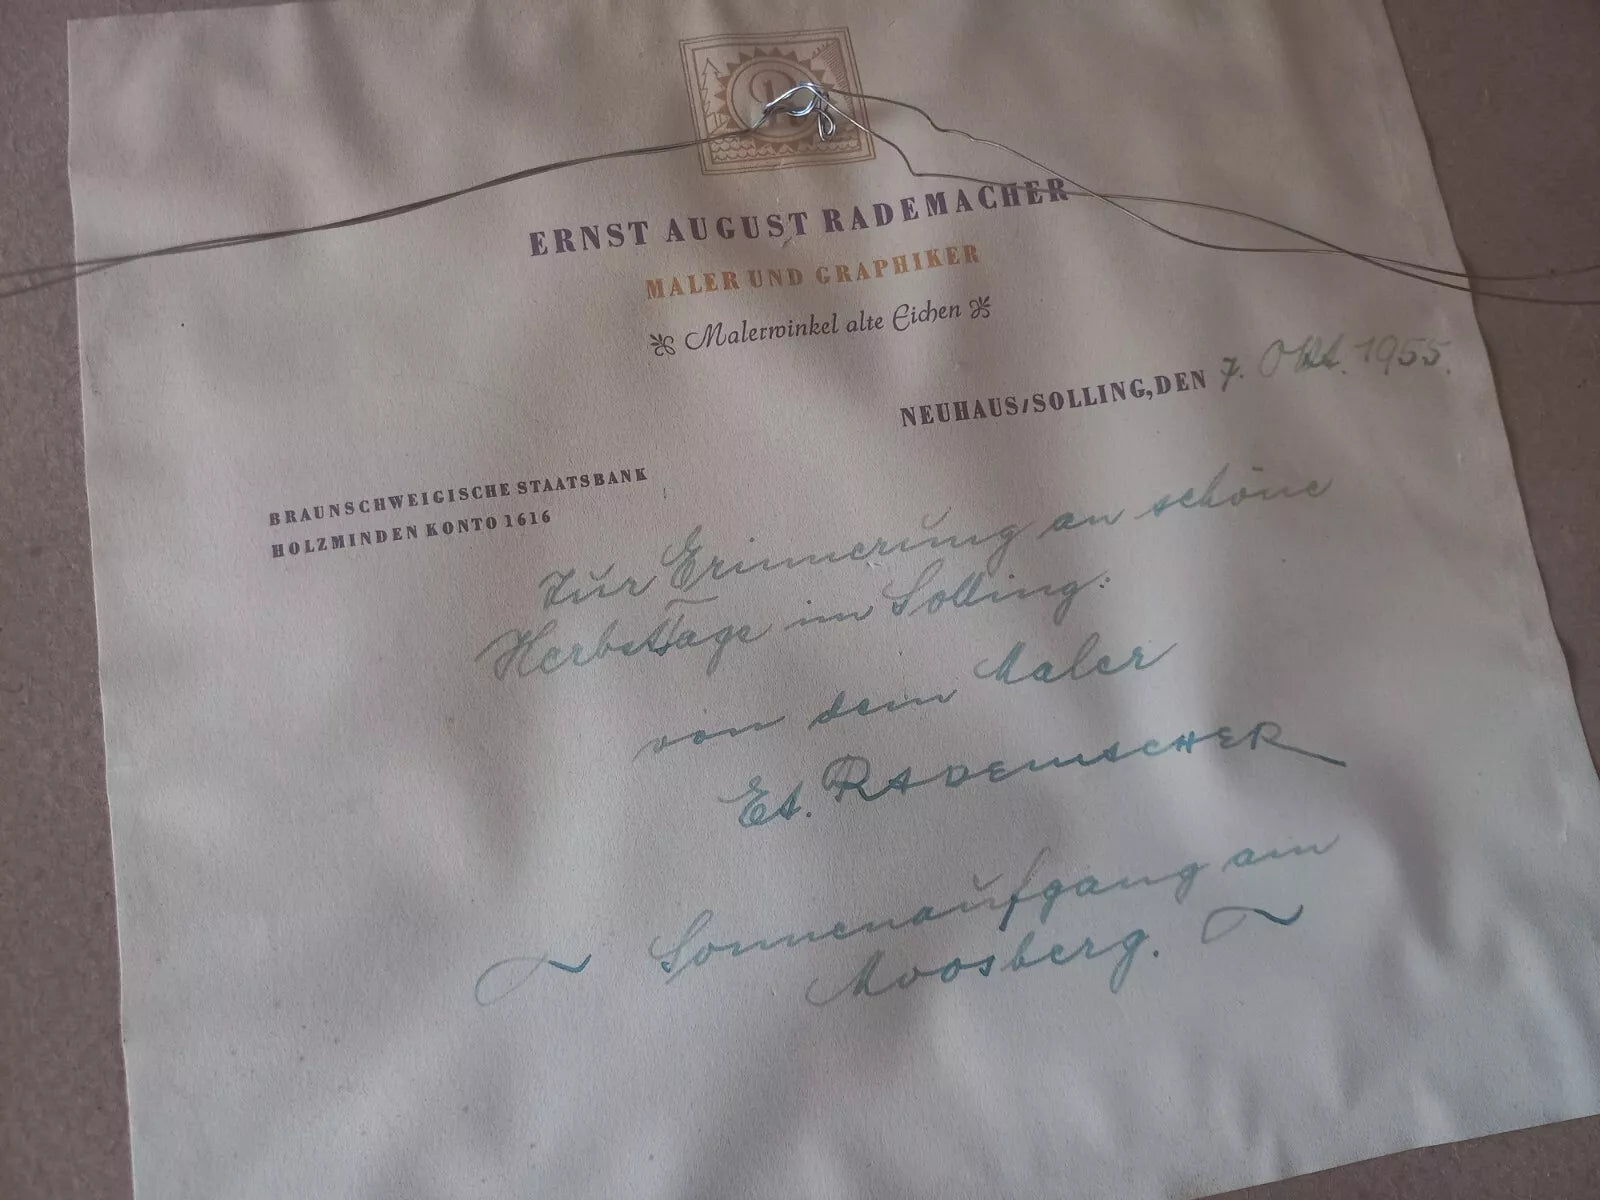 R
ERNST AUGUST RADEMACHER
MALER UND GRAPHIKER
Malerwinkel alte Eichen
NEUHAUS/SOLLING, DEN 7. Okt. 1955.
BRAUNSCHWEIGISCHE STAATSBANK
HOLZMINDEN KONTO 1616
Zur Erinnerung an schöne
Herbsttage im Solling:
von dem Maler
EA. RADEMACHER
~ Sonnenaufgang am
Moosberg. ~